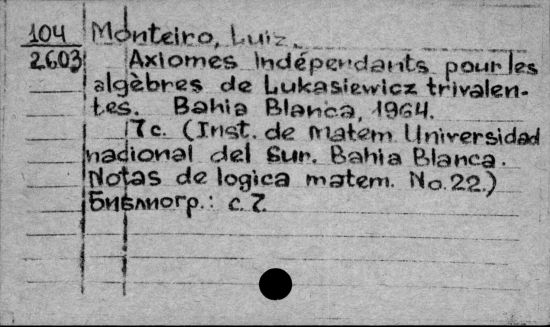 104 Monteiro, Luiz.
2603 Axiomes indépendants pour les
algèbres de Lukasiewicz trivalen-
tes. Bahia Blanca, 1964.
7 c. (Inst. de Matem. Universidad
nacional del Sur. Bahia Blanca.
Notas de logica matem. No.22.)
Библиогр.: с. 7.